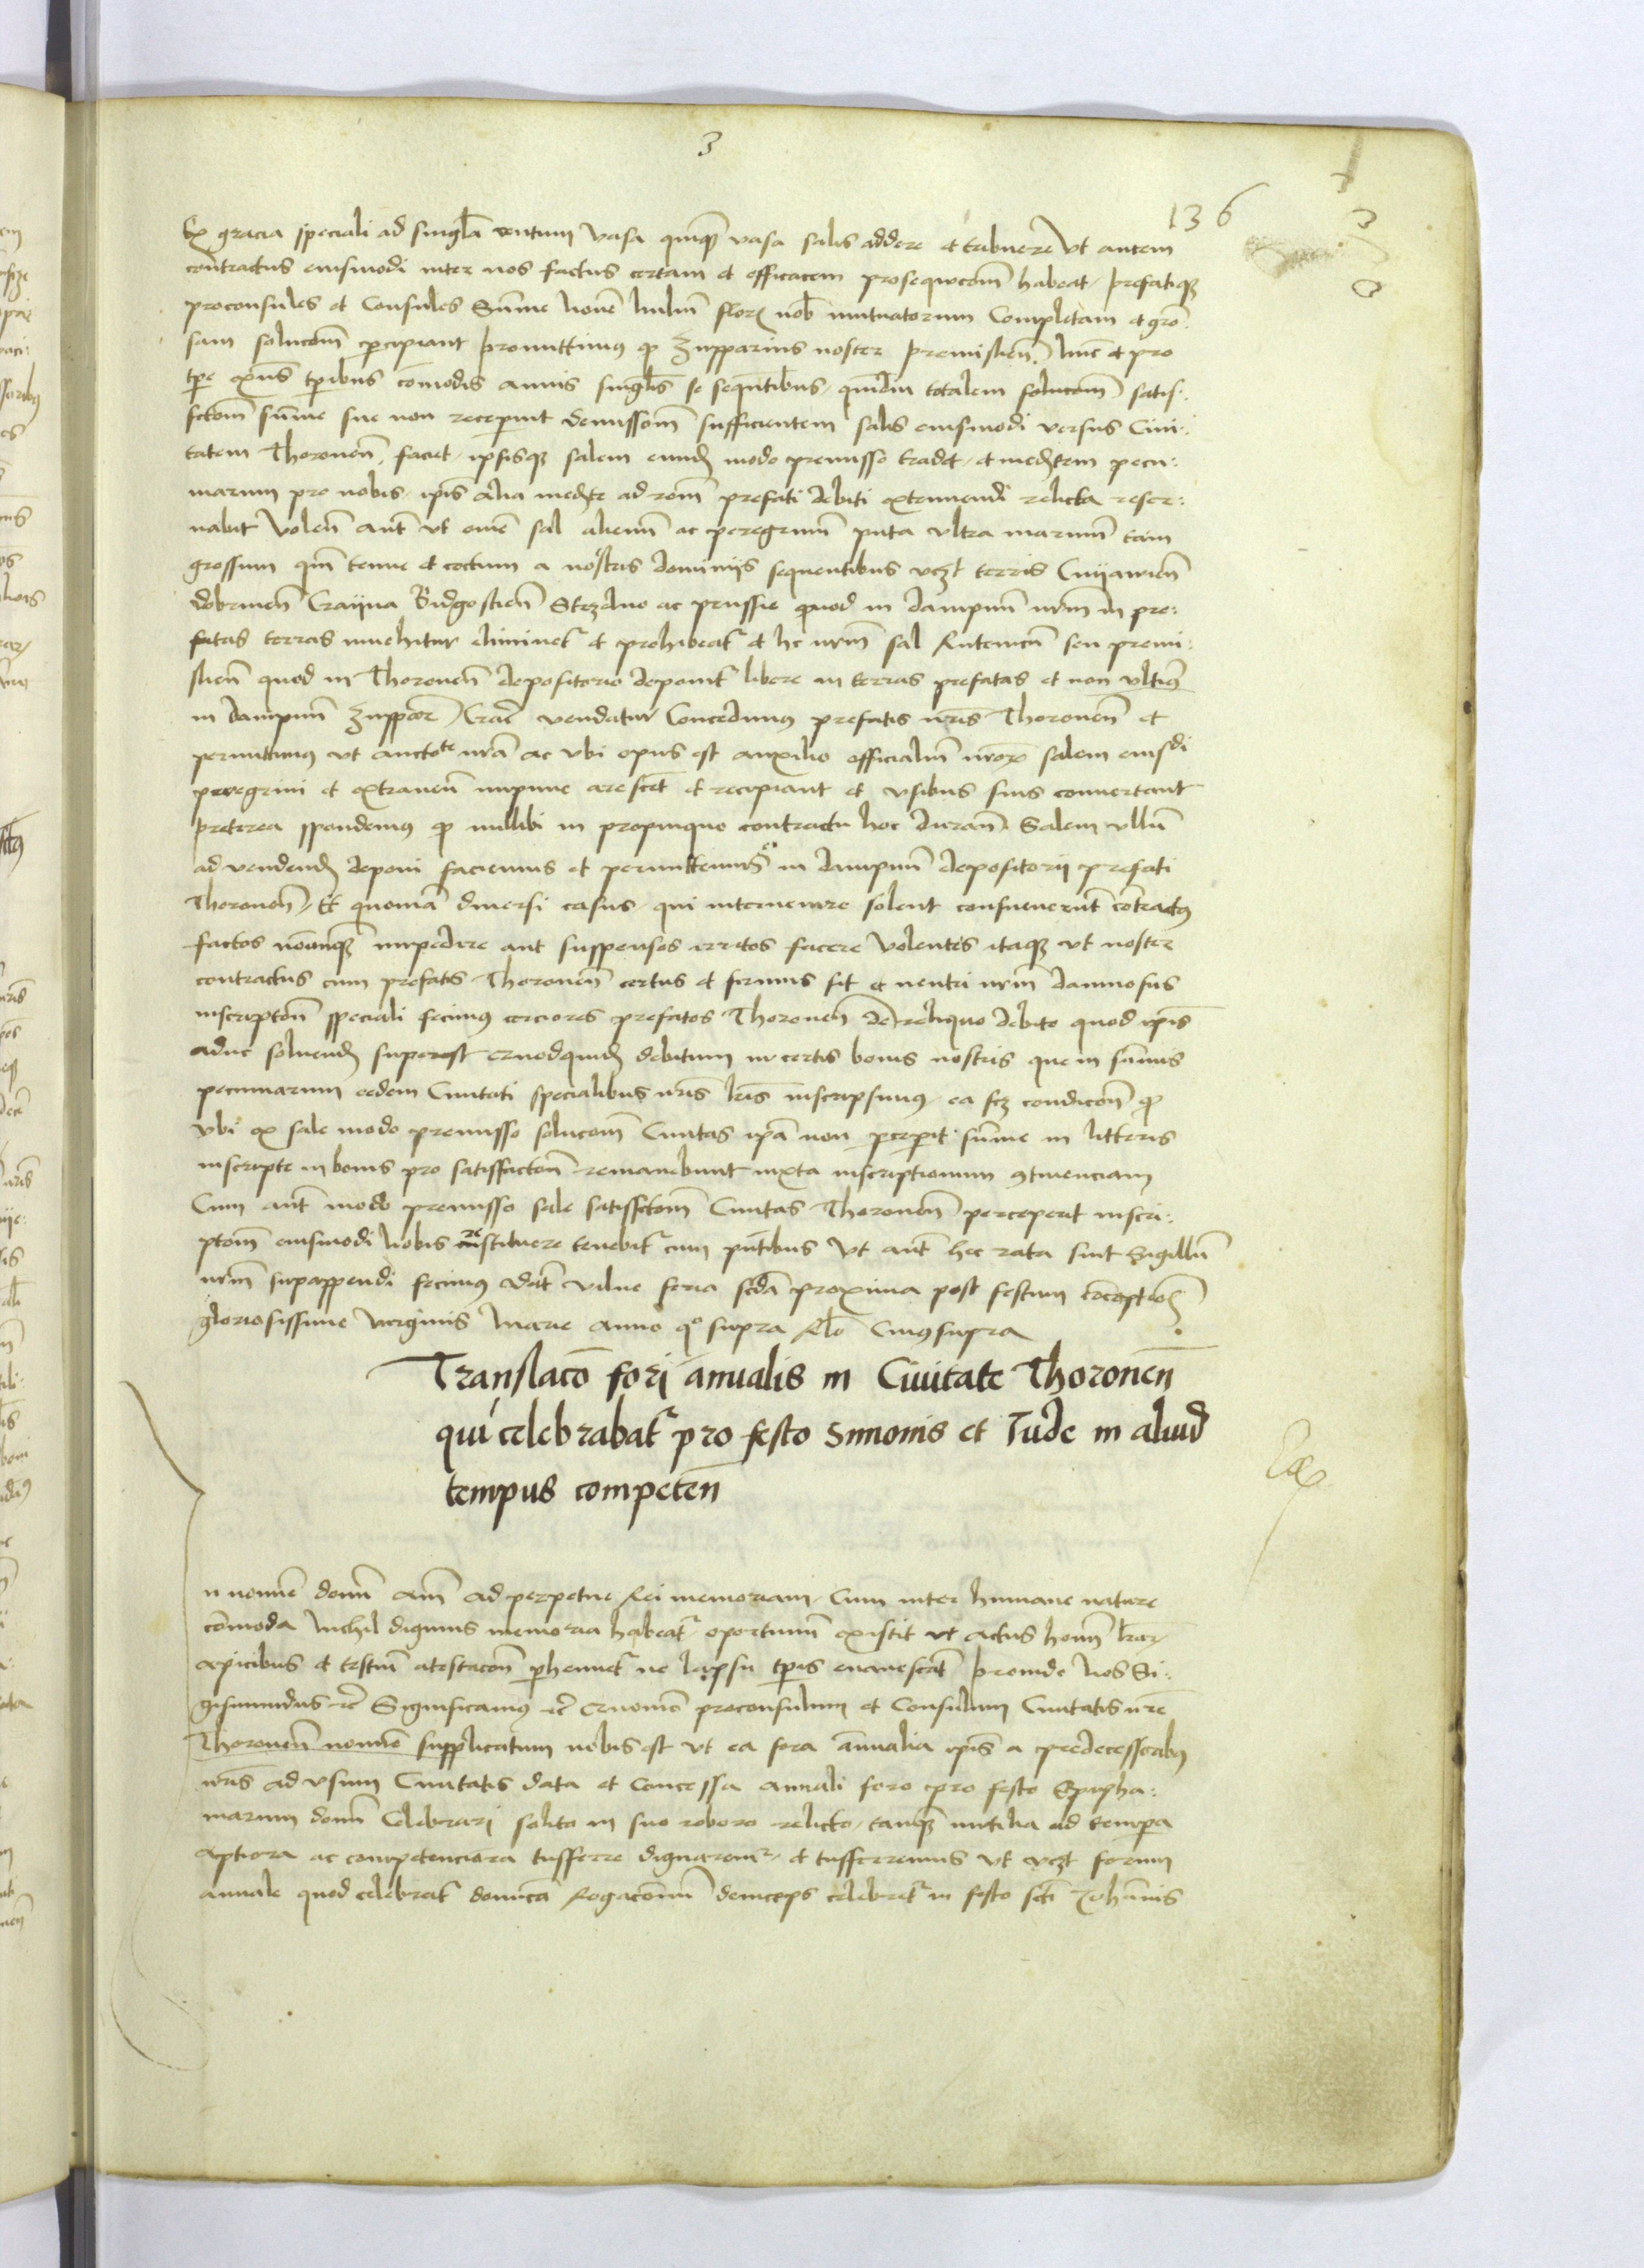 3
136
Ex gracia speciali ad singl̄a centum vasa quiqȝ vasa salis addere et tribuere Vt autem
contractus eiusmodi inter nos factus certam et efficacem prosequucoēm habeat, prefatiqȝ
proconsules et Consules Sum̄e noue miliu floꝝ nob̄ mutuatorum Completam et gro
sam solucoēm percipiant promittimus qȝ Zupparius noster premislien̄. nūc et pro
tp̄e exn̄s tp̄ribus cōmodis annis singlīs se sequētibus, quādiu totalem solucoēm satis:
fctoēm sum̄e sue non receperint demissoēm sufficientem salis eiusmodi versus Ciui:
tatem Thoronen̄. faciet, ipsisqȝ salem eund̄ modo premisso tradet, et medietem pecu:
niarum pro nobis, ip̄is alia mediete ad roēm prefati debiti extenuendi relicta reser:
uabit Volen̄ aūt vt om̄e sal alienū ac peregrinū puta vltra marinū tam
grossum qm̄ tenue et coctum a nostris dominijs sequentibus vcȝt terris Cuyauien̄
dobrinen̄ Crayna Bidgostien̄ ac prussie quod in dampnū nr̄m in pre:
fatas terras inuehitur eliminetr̄ et prohibeatr̄ et hc nr̄m sal Rutenicū seu premi:
slien̄ quod in Thoronen̄ depositorio deponitr̄ libere in terras prefatas et non vltius
in dampnū Zuppaꝝ Crac̄ vendatur Concedimus prefatis nr̄is Thoronen̄ et
permittimus vt aucto^te nr̄a ac vbi opus est auxilio officialiū nr̄oꝝ salem eiusdi
peregrini et extraneū impune arestēt et recipiant et vsibus suis conuertant
preterea spondemus qȝ nullibi in propinquo contractu hoc duran̄. Salem vllū
ad vendend̄ deponi faciemus et permittemus in dampnū depositorij prefati
Thoronen̄, Et quoniā diuersi casus, qui interuenire solent consueuerūt cōtractus
factos nōnunqȝ impedire aut suspensos irritos facere Volentes itaqȝ vt noster
contractus cum prefatis Thoronen̄ certus et firmus sit et neutri nr̄m damnosus
inscriptoēn speciali fecimus cerciores prefatos Thoronen̄ de reliquo debito quod ip̄is
aduc soluend̄ superest Quodquid debitum in certis bonis nostris que in summis
pecuniarum eedem Ciuitati specialibus nr̄is lr̄is inscripsimus, ea scȝ condicoēn qȝ
vbi ex sale modo premisso solucoēm Ciuitas ip̄a non perceperit sum̄e in litteris
inscripte in bonis pro satisfactoēn remanebunt iuxta inscriptionum ꝯtinenciam
Cum aūt modo premisso sale satisfctoēm Ciuitas Thoronen̄ perceperit inscri:
ptoēm eiusmodi nobis restituere tenebitr̄ cum pn̄tibus Vt aūt hec rata sint Sigillū
nr̄m supappendi fecimus dat̄ vilne feria scd̄a proxima post festum cōceptiōis
gloriosissime virginis Marie anno q° supra Rl̄o Cuius supra
Translacō fori anualis in Ciuitate Thoronen̄
qui celebrabatr̄ pro festo Simonis et Iude in aliud
tempus competen̄
n nomīe domī am̄ ad perpetue Rei memoriam, Cum inter humane nature
cōmoda Nichil dignius memoria habeatr̄ oportunū existit vt actus homm̄ lr̄aꝝ
apicibus et testiū atestacoēn perhennetr̄ ne lapsu tp̄is euanescat̄ proinde Nos Si:
gismundus etc̄ Significamus etc̄ Quomō proconsulum et Consulum Ciuitatis nr̄e
Thoronen̄ nomīe supplicatum nobis est vt ea fora annualia ip̄is a predecessoribus
nr̄is ad vsum Ciuitatis data et Concessa annali foro pro festo Epipha:
niarum domī Celebrari solito in suo robore relicto, tanqȝ inutilia ad tempora
aptiora ac competenciora trāsferre dignaremr̄, et trāsferremus vt vcȝt forum
annale quod celebratr̄ domīca Rogacōnū deinceps celebretr̄ in festo scti Iohānis